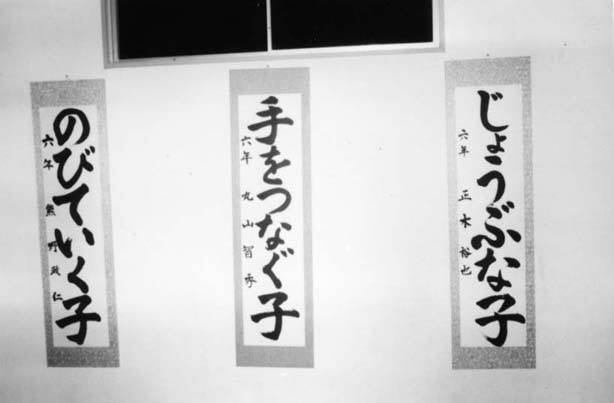 じょうぶな子
六年 正木裕也
手をつなぐ子
六年 丸山智
のびていく子
六年